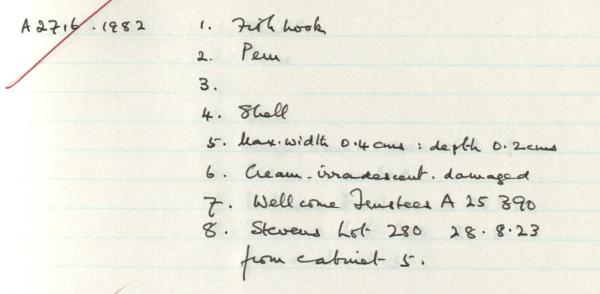 A 2716.1982 1. Fish hook
2. Peru
3.
4. Shell
5. Max. width 0.4cms : depth 0.2cms
6. Cream - irradescent. damaged
7. Wellcome Trustees A 25 390
8. Stevens Lot 280 28.8.23
from cabinet 5.